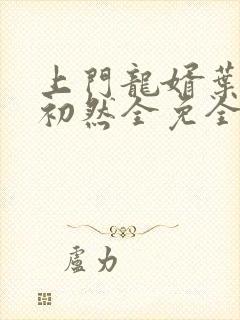 上門龍婿葉
初然全免全
盧力